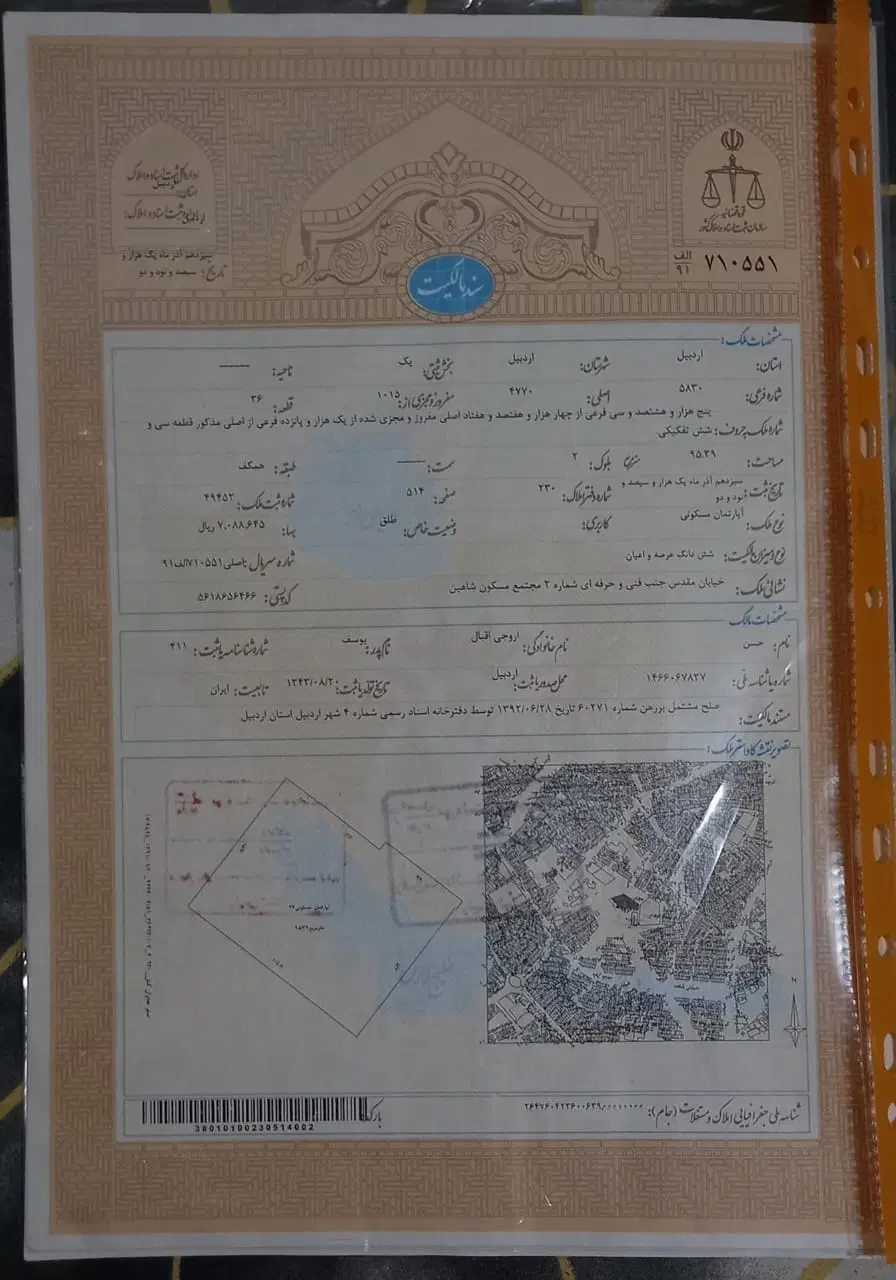 قوه قضائیه
سازمان ثبت اسناد و املاک کشور
اداره کل ثبت اسناد و املاک
استان: اردبیل
اداره ثبت اسناد و املاک: اردبیل
تاریخ: سیزدهم آذر ماه یک هزار و سیصد و نود و دو
۷۱۰۵۵۱ الف ۹۱
سند مالکیت
مشخصات ملک:
استان: اردبیل شهرستان: اردبیل بخش ثبتی: یک ناحیه: ———
شماره فرعی: ۵۸۳۰ اصلی: ۴۷۷۰ مفروز و مجزی از: ۱۰۱۵ قطعه: ۳۶
شماره ملک بحروف: پنج هزار و هشتصد و سی فرعی از چهار هزار و هفتصد و هفتاد اصلی مفروز و مجزی شده از یک هزار و پانزده فرعی از اصلی مذکور قطعه سی و
شش تفکیکی
مساحت: ۹۵.۳۹ متر مربع بلوک: ۲ سمت: ——— طبقه: همکف
تاریخ ثبت: سیزدهم آذر ماه یک هزار و سیصد و نود و دو شماره دفتر املاک: ۲۳۰ صفحه: ۵۱۴ شماره ثبت ملک: ۴۹۴۵۲
نوع ملک: آپارتمان مسکونی کاربری: وضعیت خاص: طلق بها: ۷,۰۸۸,۶۴۵ ریال
نوع و میزان مالکیت: شش دانگ عرصه و اعیان شماره سریال: اصلی۷۱۰۵۵۱الف۹۱
نشانی ملک: خیابان مقدس جنب فنی و حرفه ای شماره ۲ مجتمع مسکون شاهین کد پستی: ۵۶۱۸۶۵۶۴۶۶
مشخصات مالک
نام: حسن نام خانوادگی: اروجی اقبال نام پدر: یوسف شماره شناسنامه یا ثبت: ۴۱۱
شماره یا شناسه ملی: ۱۴۶۶۰۶۷۸۳۷ محل صدور یا ثبت: اردبیل تاریخ تولد یا ثبت: ۱۳۴۳/۰۸/۲ تابعیت: ایران
مستند مالکیت: صلح مشتمل بررهن شماره ۶۰۲۷۱ تاریخ ۱۳۹۲/۰۶/۲۸ توسط دفترخانه اسناد رسمی شماره ۴ شهر اردبیل استان اردبیل
تصویر نقشه کاداستر ملک:
N
شناسه ملی جغرافیایی املاک و مستغلات (جام):
بارکد
38010100230514002